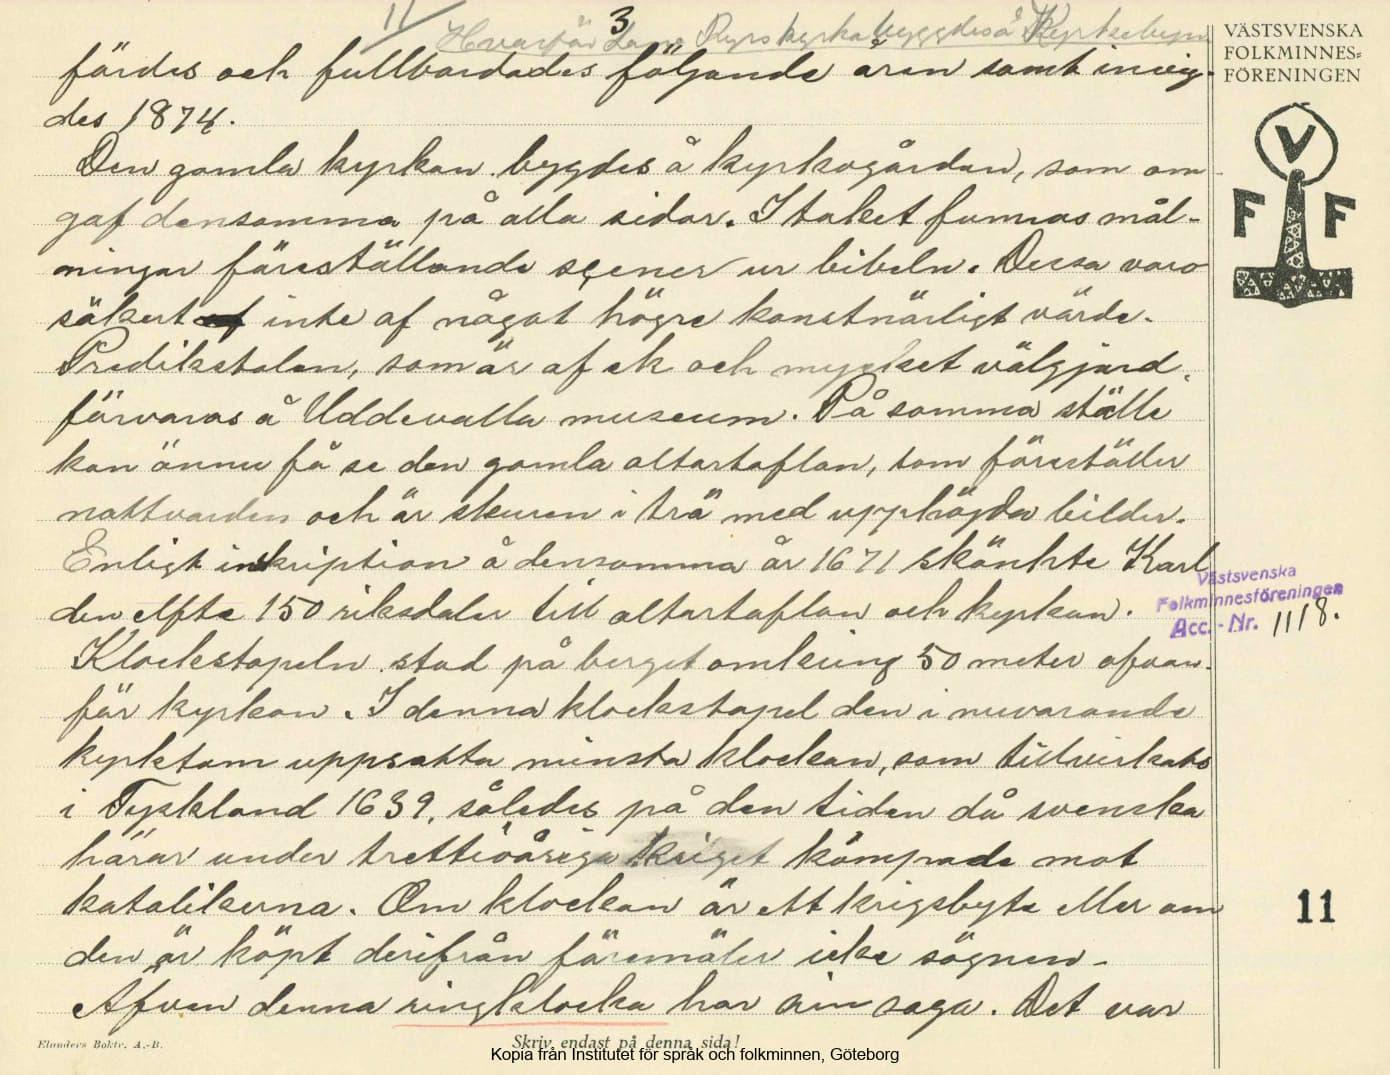 11
3
Hvarför Lane Ryrs kyrka byggdes å Kyrkebyn
VÄSTSVENSKA
FOLKMINNES=
FÖRENINGEN
fördes och fullbordades följande åren samt invig-
des 1874.
Den gamla kyrkan bygdes å kyrkogården, som om-
gaf densamma på alla sidor. I taket funnos mål-
ningar föreställande scener ur bibeln. Dessa voro
säkert inte af något högre konstnärligt värde.
Predikstolen, som är af ek och mycket välgjord,
förvaras å Uddevalla museum. På samma ställe
kan ännu få se den gamla altartaflan, som föreställer
nattvarden och är skuren i trä med upphöjda bilder.
Enligt inskription å densamma år 1671 skänkte Karl
den elfte 150 riksdaler till altartaflan och kyrkan.
Klockstapeln stod på berget omkring 50 meter ofvan-
för kyrkan. I denna klockstapel den i nuvarande
kyrktorn uppsatta minsta klockan, som tillvirkats
i Tyskland 1639, således på den tiden då svenska
härar under trettioåriga kriget kämpade mot
katolikerna. Om klockan är ett krigsbyte eller om
den är köpt derifrån förmäler icke sägnen.
Äfven denna ringklocka har sin saga. Det var
V
F F
Västsvenska
Folkminnesföreningen
Acc.-Nr. 1118.
11
Elanders Boktr. A.-B.
Skriv endast på denna sida!
Kopia från Institutet för språk och folkminnen, Göteborg